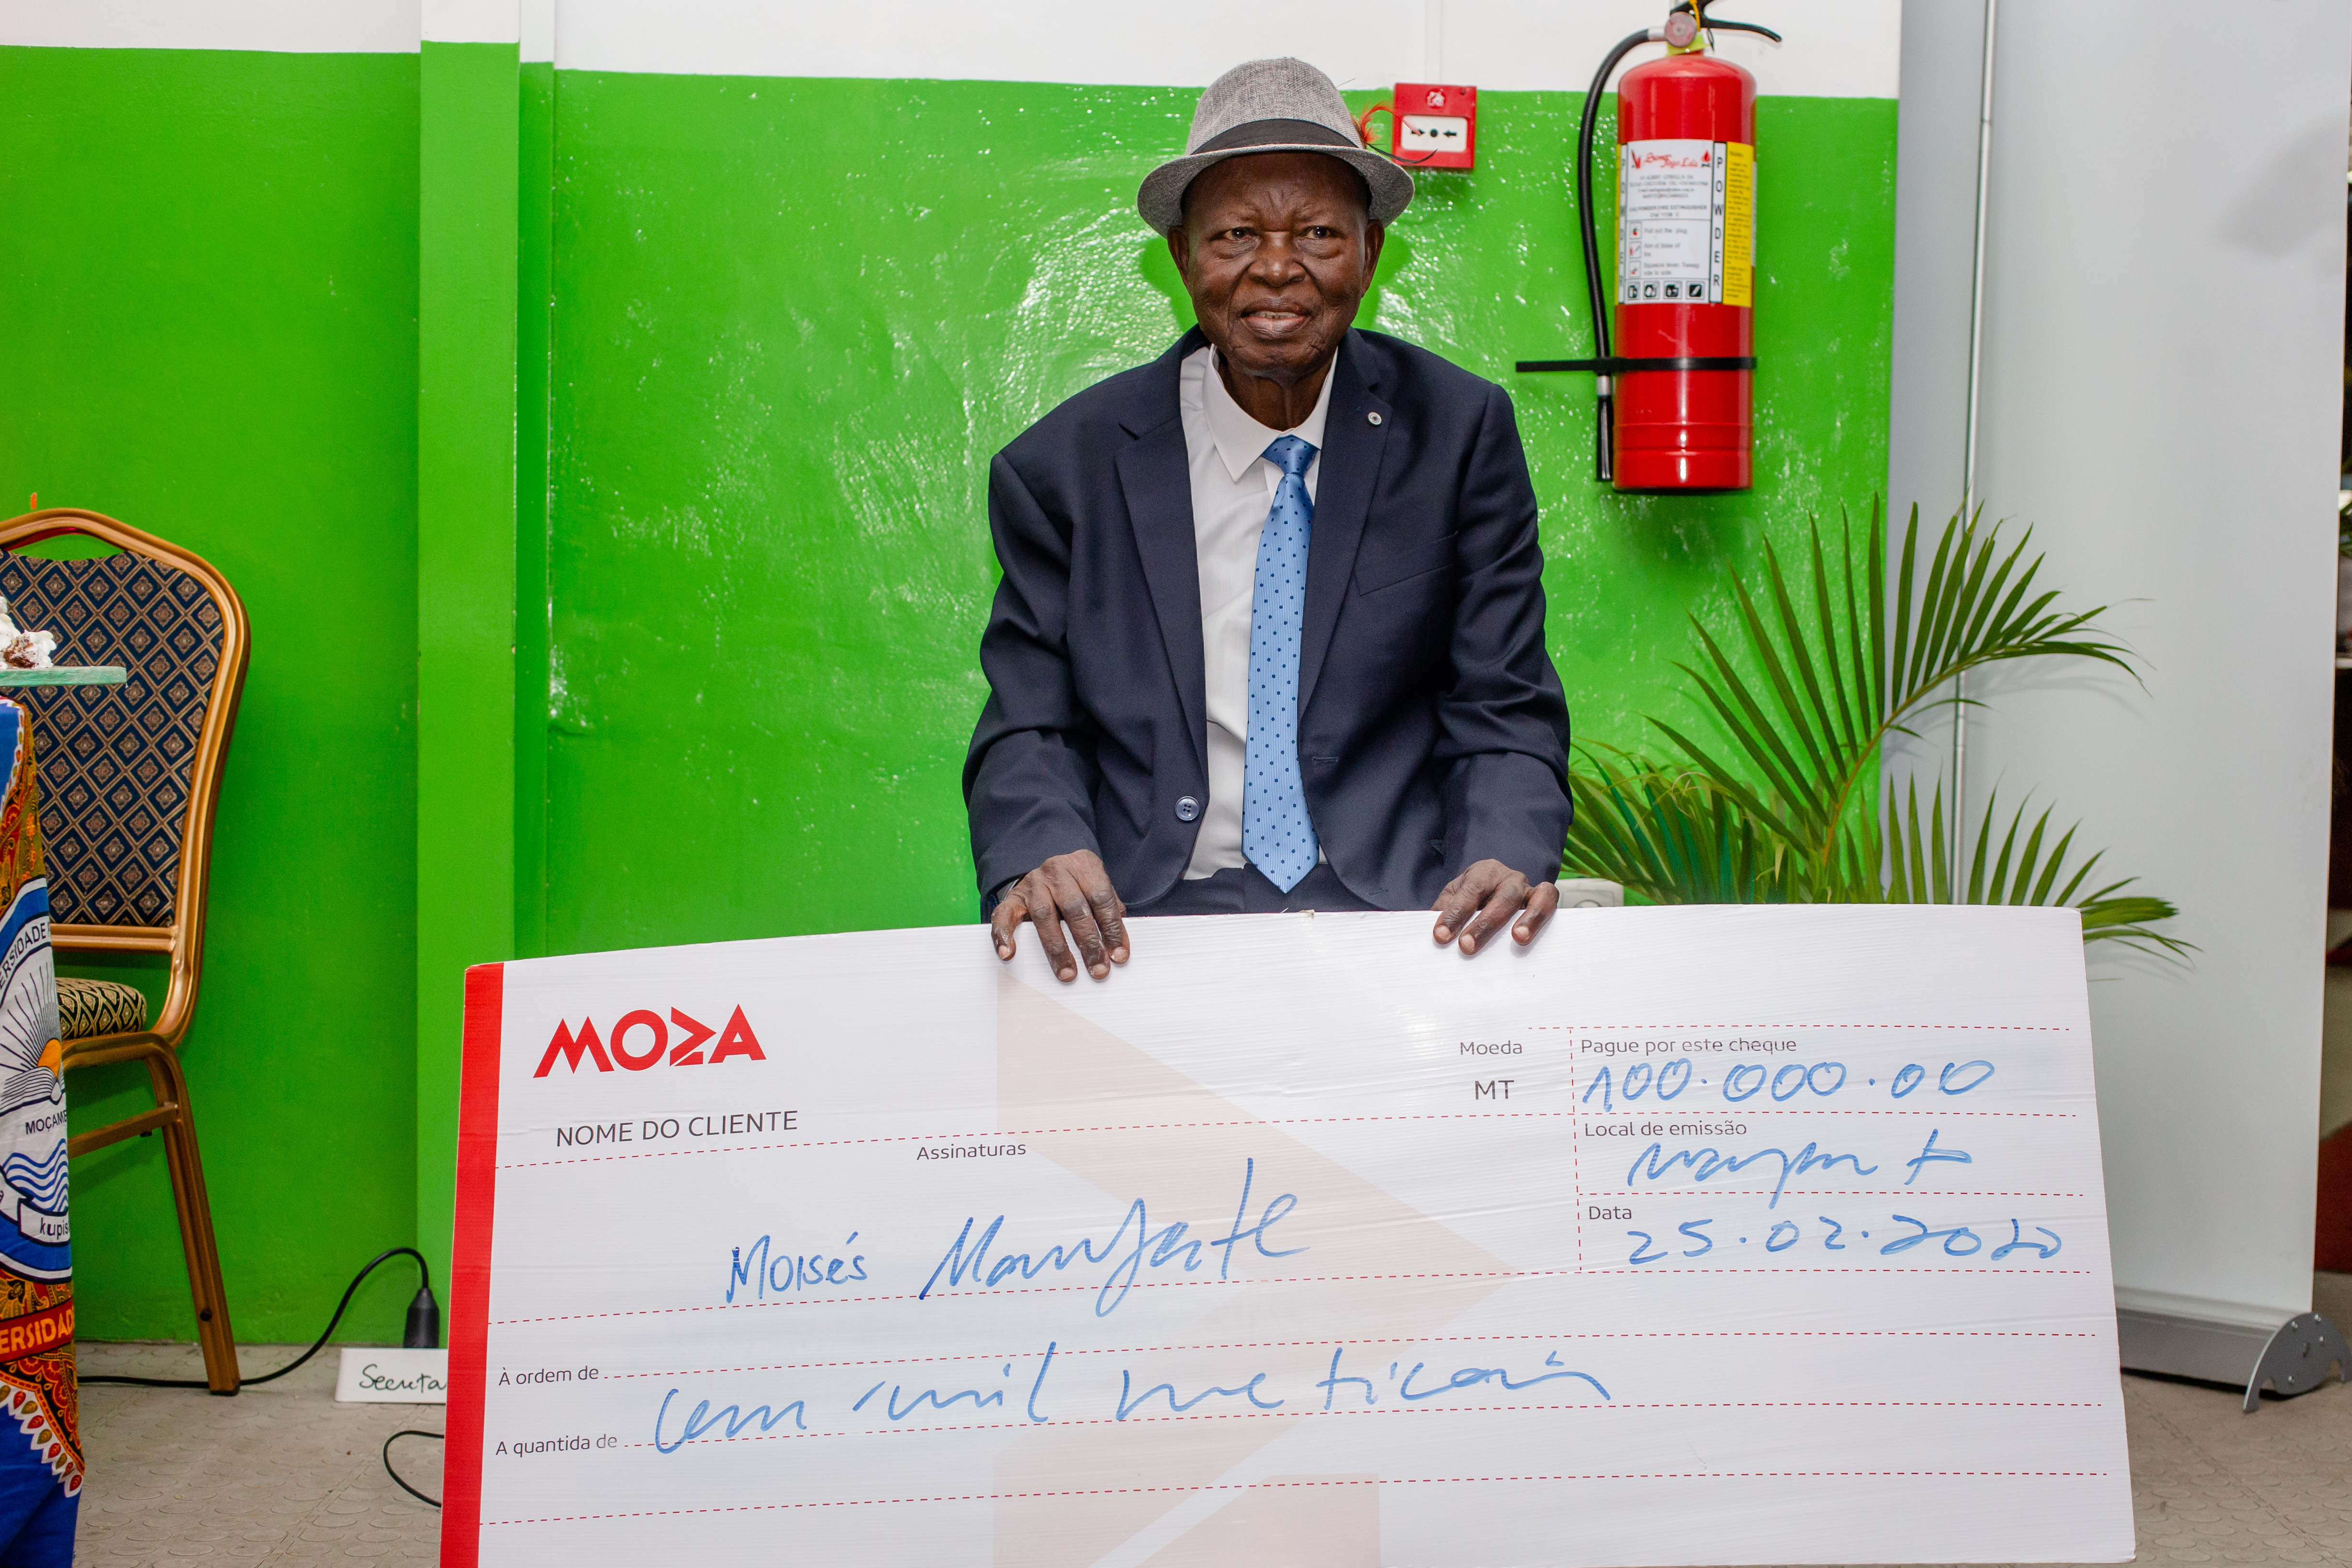 POWDER
POWDER
MOZA
NOME DO CLIENTE
Assinaturas
Moeda
MT
Pague por este cheque
100.000.00
Local de emissão
Maputo
Data
25.02.2020
Moisés
À ordem de
Cem mil meticais
A quantida de
ERSIDADE
MOÇAM
kupis
ERSIDAD
Secreta